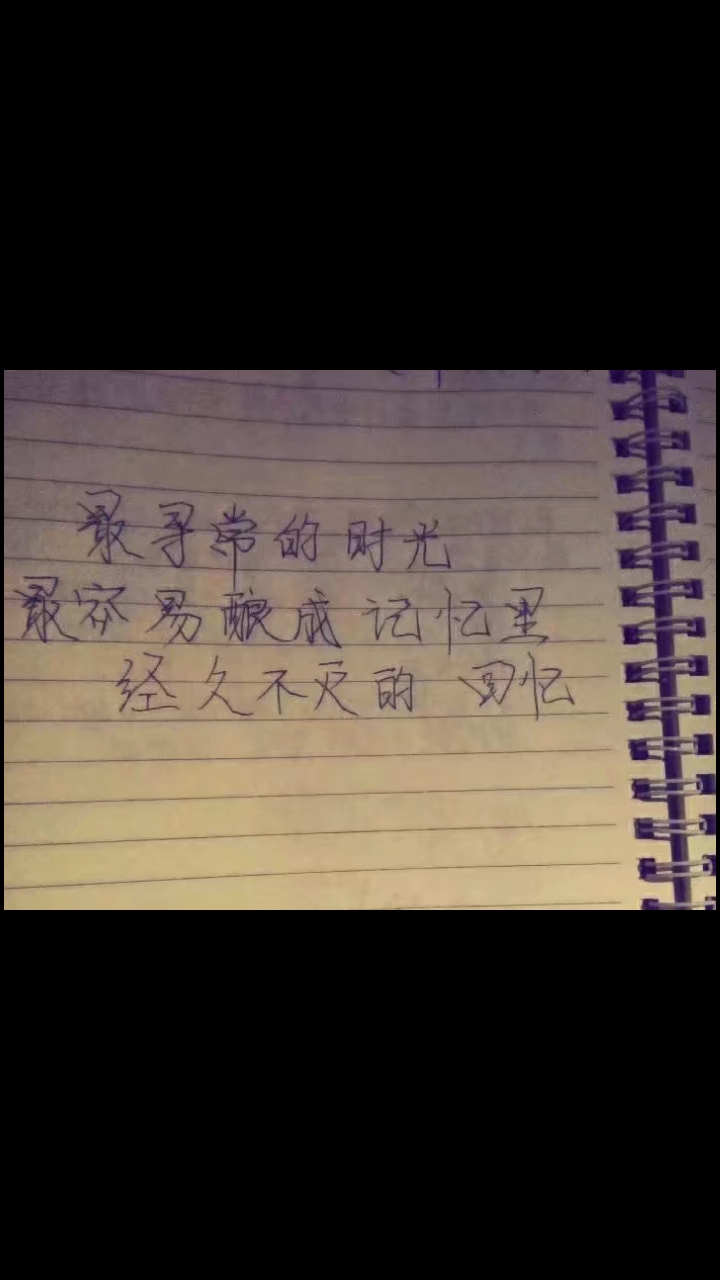 最寻常的时光
最容易酿成记忆里
经久不灭的 回忆